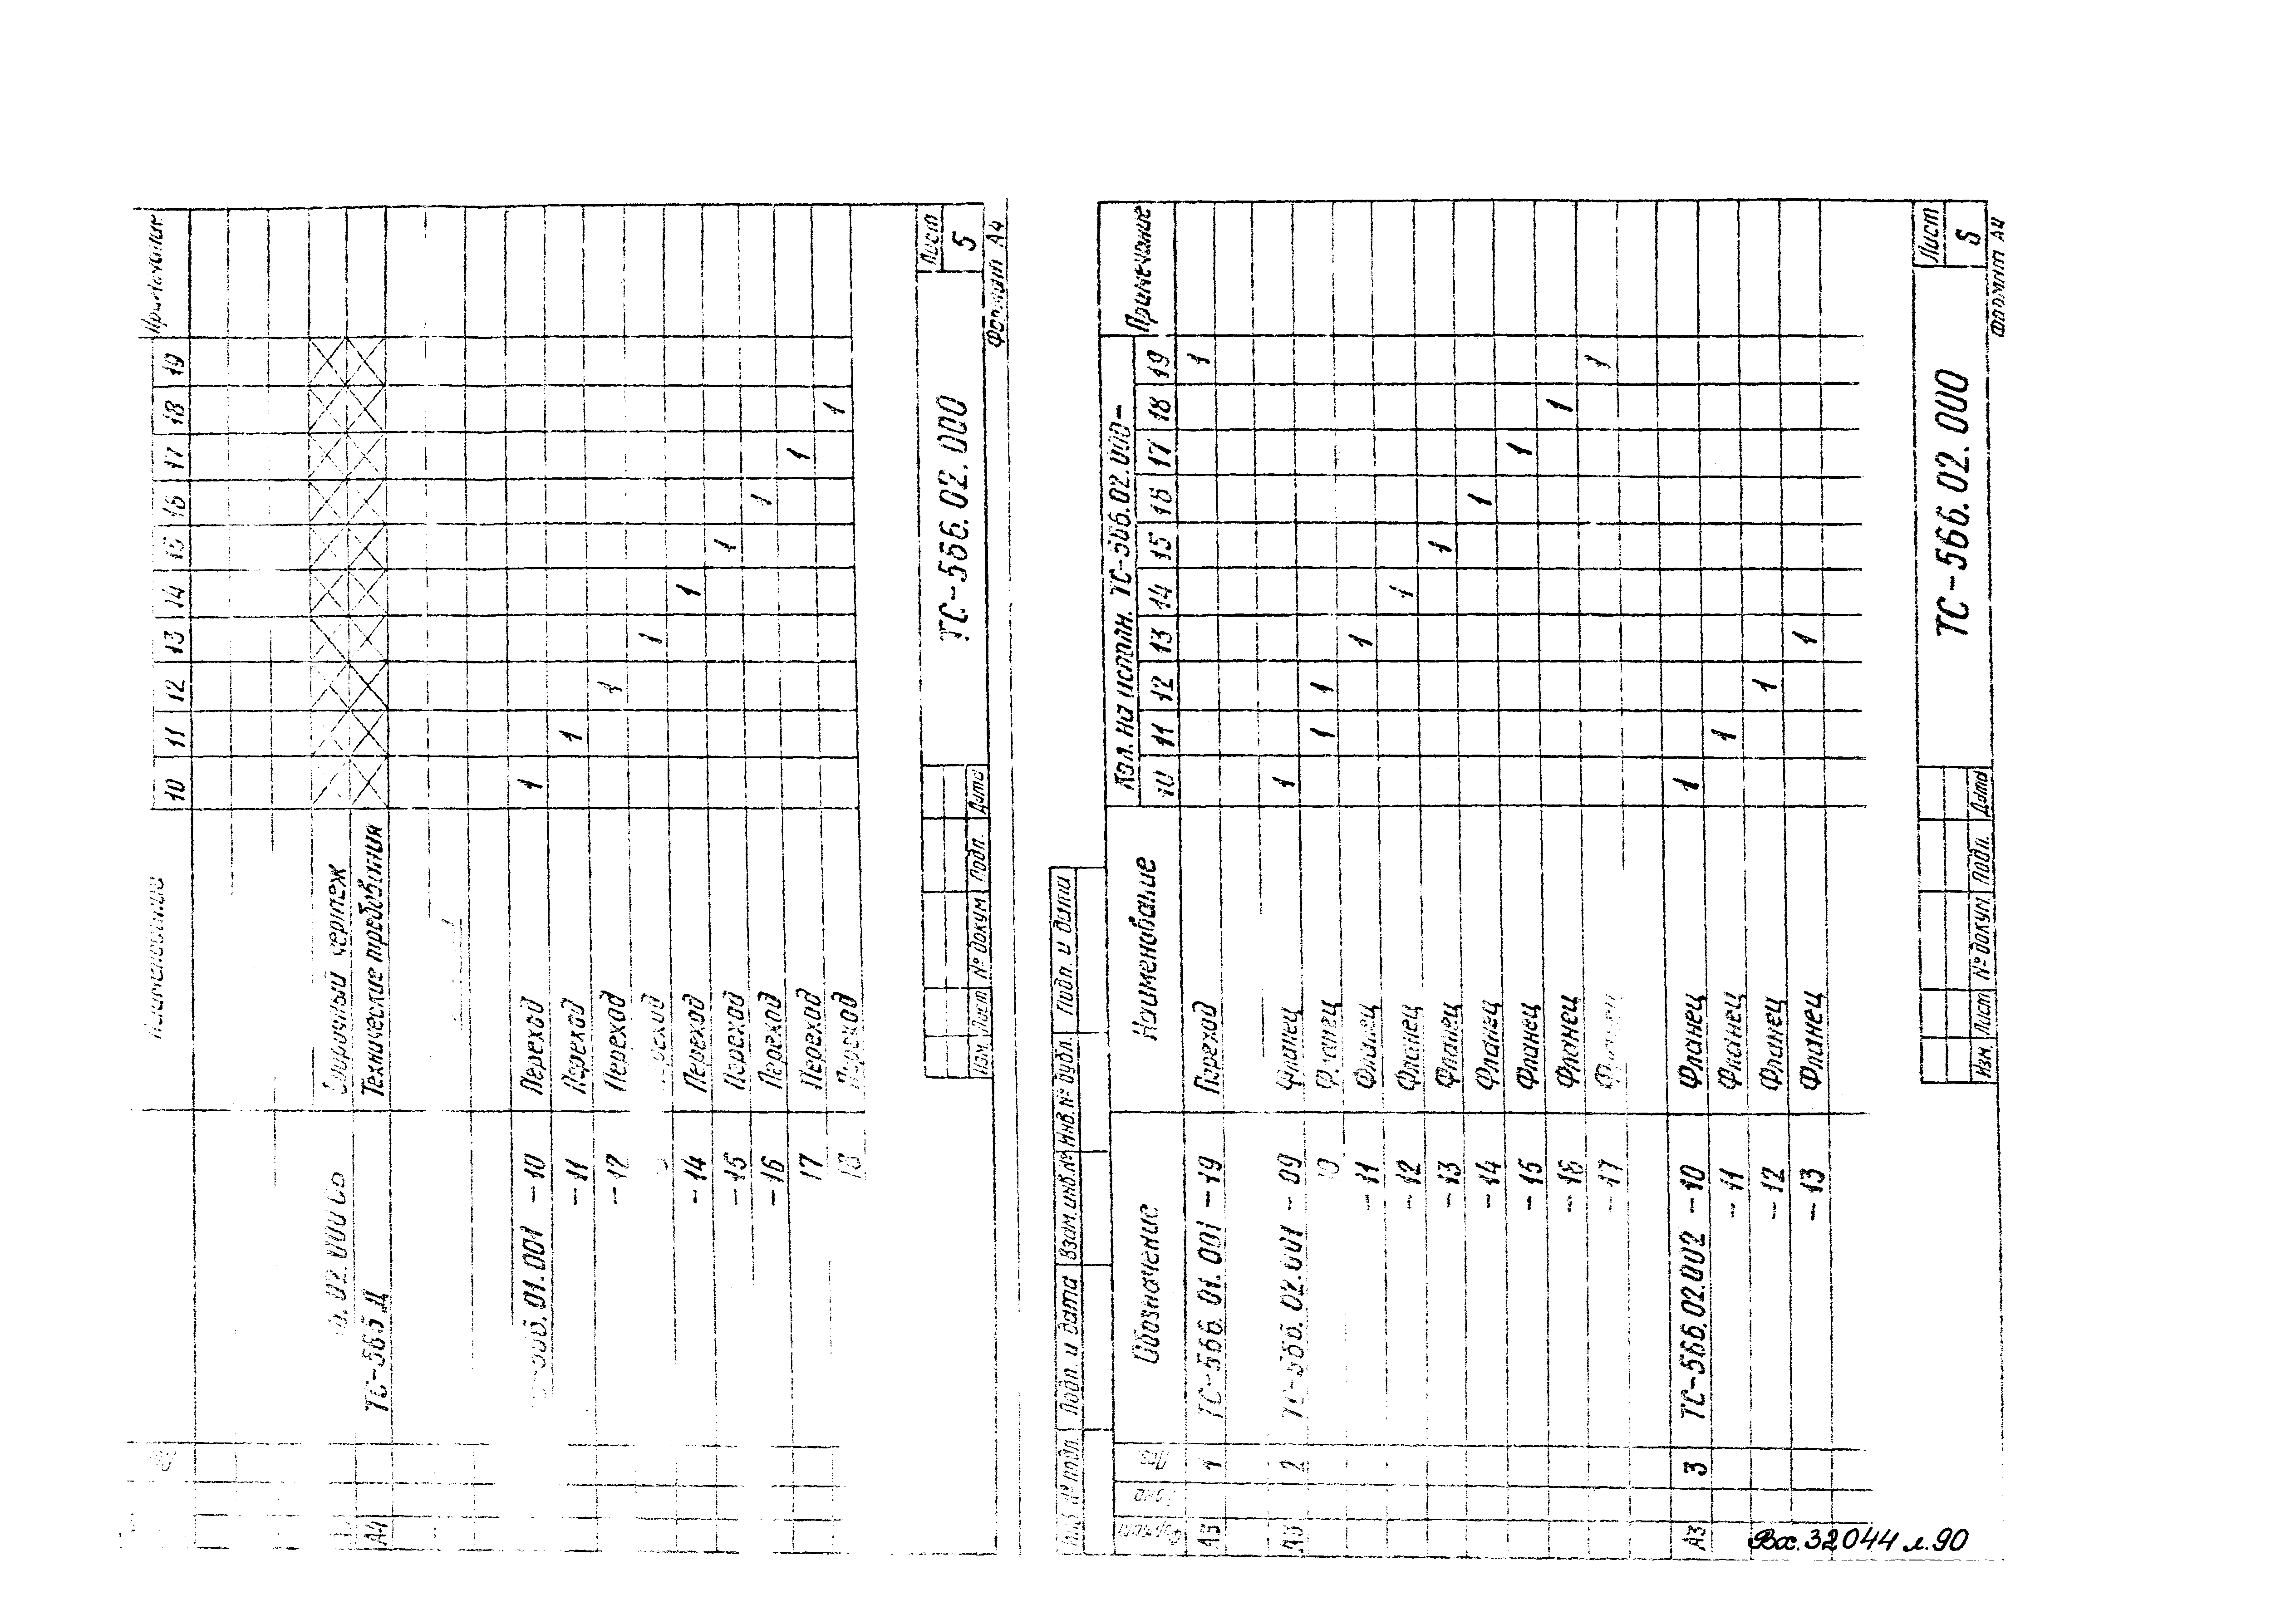 Примечание
10 11 12 13 14 15 16 17 18 19
Наименование
02.000 СБ Сборочный чертеж
А4 ТС-566 Д Технические требования
566.01.001 -10 Переход 1
-11 Переход 1
-12 Переход 1
1
-14 Переход 1
-15 Переход 1
-16 Переход 1
17 Переход 1
18 Переход 1
Изм. Лист № докум. Подп. Дата
ТС-566.02.000
Лист
5
Формат А4
Инв. № подл. Подп. и дата Взам. инв. № Инв. № дубл. Подп. и дата
Формат Зона Поз. Обозначение Наименование Кол. на исполн. ТС-566.02.000- Примечание
10 11 12 13 14 15 16 17 18 19
А3 1 ТС-566.01.001 -19 Переход 1
А3 2 ТС-566.02.001 -09 Фланец 1
10 Фланец 1 1
-11 Фланец 1
-12 Фланец 1
-13 Фланец 1
-14 Фланец 1
-15 Фланец 1
-16 Фланец 1
-17 Фланец 1
А3 3 ТС-566.02.002 -10 Фланец 1
-11 Фланец 1
-12 Фланец 1
-13 Фланец 1
Изм. Лист № докум. Подп. Дата
ТС-566.02.000
Лист
Формат А4
Вх. 32044 л. 90